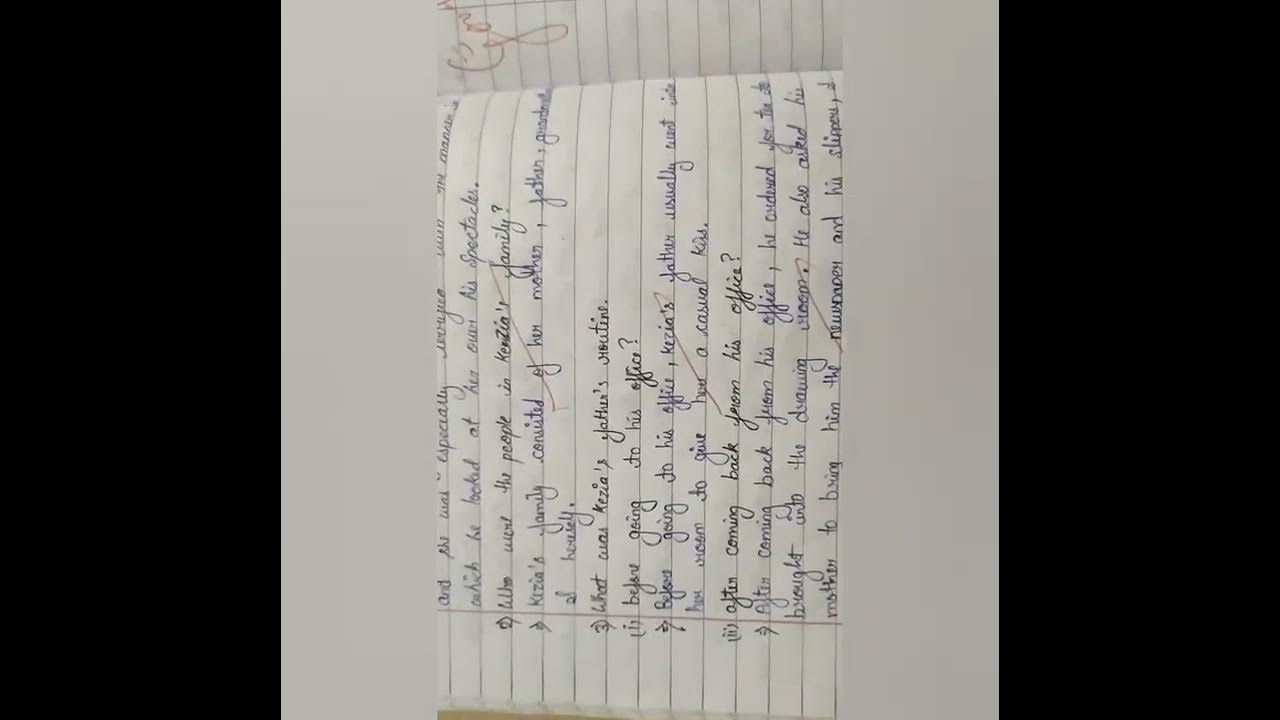 and she was especially terrified with the manner in
which he looked at her over his spectacles.
2) Who were the people in Kezia's family?
⇒ Kezia's family consisted of her mother, father, grandma
& herself.
3) What was Kezia's father's routine.
(i) before going to his office?
⇒ Before going to his office, kezia's father usually went into
her room to give her a casual kiss.
(ii) after coming back from his office?
⇒ After coming back from his office, he ordered for tea to
brought into the drawing room. He also asked his
mother to bring him the newspaper and his slippers, &